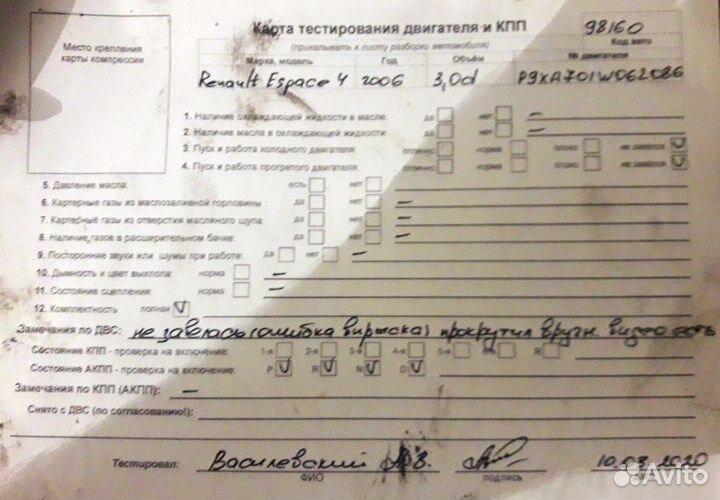 Карта тестирования двигателя и КПП 98160
(прикалывать к листу разборки автомобиля) Код авто
Место крепления карты компрессии
Марка, модель Год Объём № двигателя
Renault Espace 4 2006 3,0d P9XA701W062086
1. Наличие охлаждающей жидкости в масле: да нет –
2. Наличие масла в охлаждающей жидкости: да нет –
3. Пуск и работа холодного двигателя: отлично норма плохо не завёлся V
4. Пуск и работа прогретого двигателя: отлично норма плохо не завёлся V
5. Давление масла: есть нет
6. Картерные газы из маслозаливной горловины: да нет –
7. Картерные газы из отверстия масляного щупа: да нет –
8. Наличие газов в расширительном бачке: да нет –
9. Посторонние звуки или шумы при работе: да нет –
10. Дымность и цвет выхлопа: норма –
11. Состояние сцепления: норма –
12. Комплектность полная V
Замечания по ДВС: не завелась (ошибка впрыска) прокрутил вручн. видео есть
Состояние КПП - проверка на включение: 1-я 2-я 3-я 4-я 5-я 6-я R
Состояние АКПП - проверка на включение: P V R V N V D V
Замечания по КПП (АКПП): –
Снято с ДВС (по согласованию!):
Тестировал: Василевский В. 10.03.2020
ФИО подпись
Avito